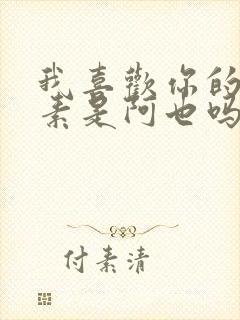 我喜歡你的
素是阿也吗
付素清